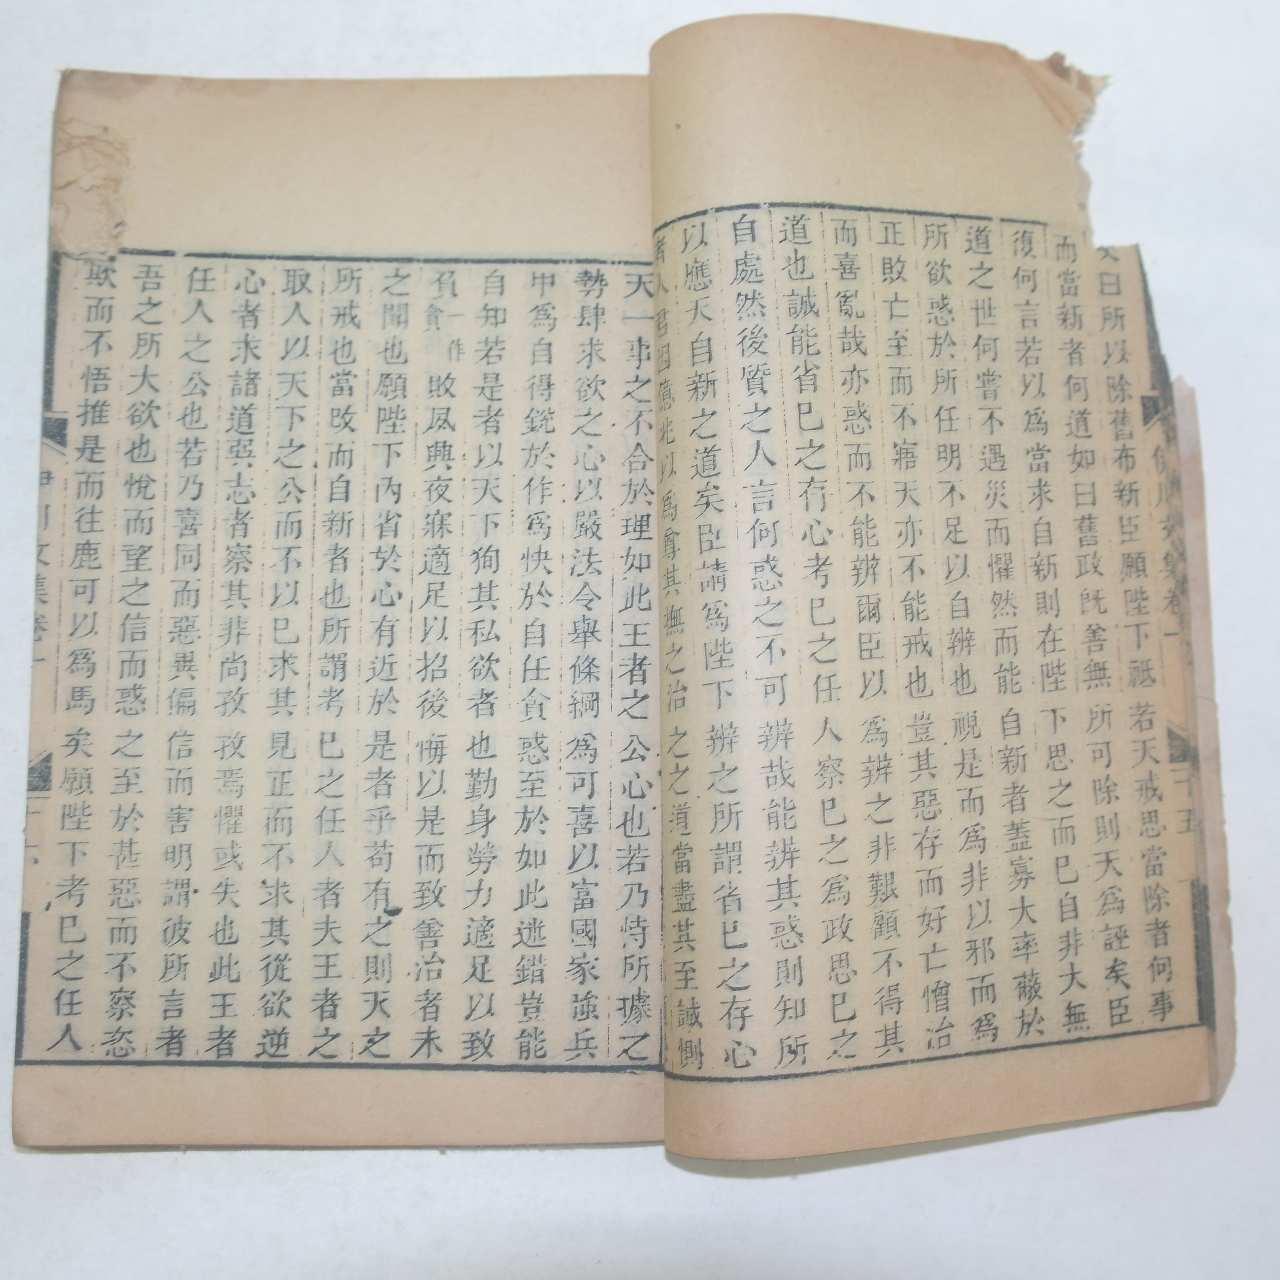 曰所以除舊布新臣願陛下祗若天戒思當除者何事
而當新者何道如曰舊政旣善無所可除則天爲誣矣臣
復何言若以爲當求自新則在陛下思之而已自非大無
道之世何嘗不遇災而懼然而能自新者蓋寡大率蔽於
所欲惑於所任明不足以自辨也視是而爲非以邪而爲
正敗亡至而不寤天亦不能戒也豈其惡存而好亡憎治
而喜亂哉亦惑而不能辨爾臣以爲辨之非艱顧不得其
道也誠能省已之存心考已之任人察已之爲政思已之
自處然後質之人言何惑之不可辨哉能辨其惑則知所
以應天自新之道矣臣請爲陛下辨之所謂省已之存心
者人君因億兆以爲尊其撫之治之之道當盡其至誠惻
天一事之不合於理如此王者之公心也若乃恃所據之
勢肆求欲之心以嚴法令舉條綱爲可喜以富國家強兵
甲爲自得銳於作爲快於自任貪惑至於如此迷錯豈能
自知若是者以天下狥其私欲者也勤身勞力適足以致
負一作貪敗夙興夜寐適足以招後悔以是而致善治者未
之聞也願陛下內省於心有近於是者乎苟有之則天之
所戒也當改而自新者也所謂考已之任人者夫王者之
取人以天下之公而不以已求其見正而不求其從欲逆
心者求諸道巽志者察其非尚孜孜焉懼或失也此王者
任人之公也若乃喜同而惡異偏信而害明謂彼所言者
吾之所大欲也悅而望之信而惑之至於甚惡而不察恣
欺而不悟推是而往鹿可以爲馬矣願陛下考已之任人
伊川文集卷一
十五
伊川文集卷一
十六